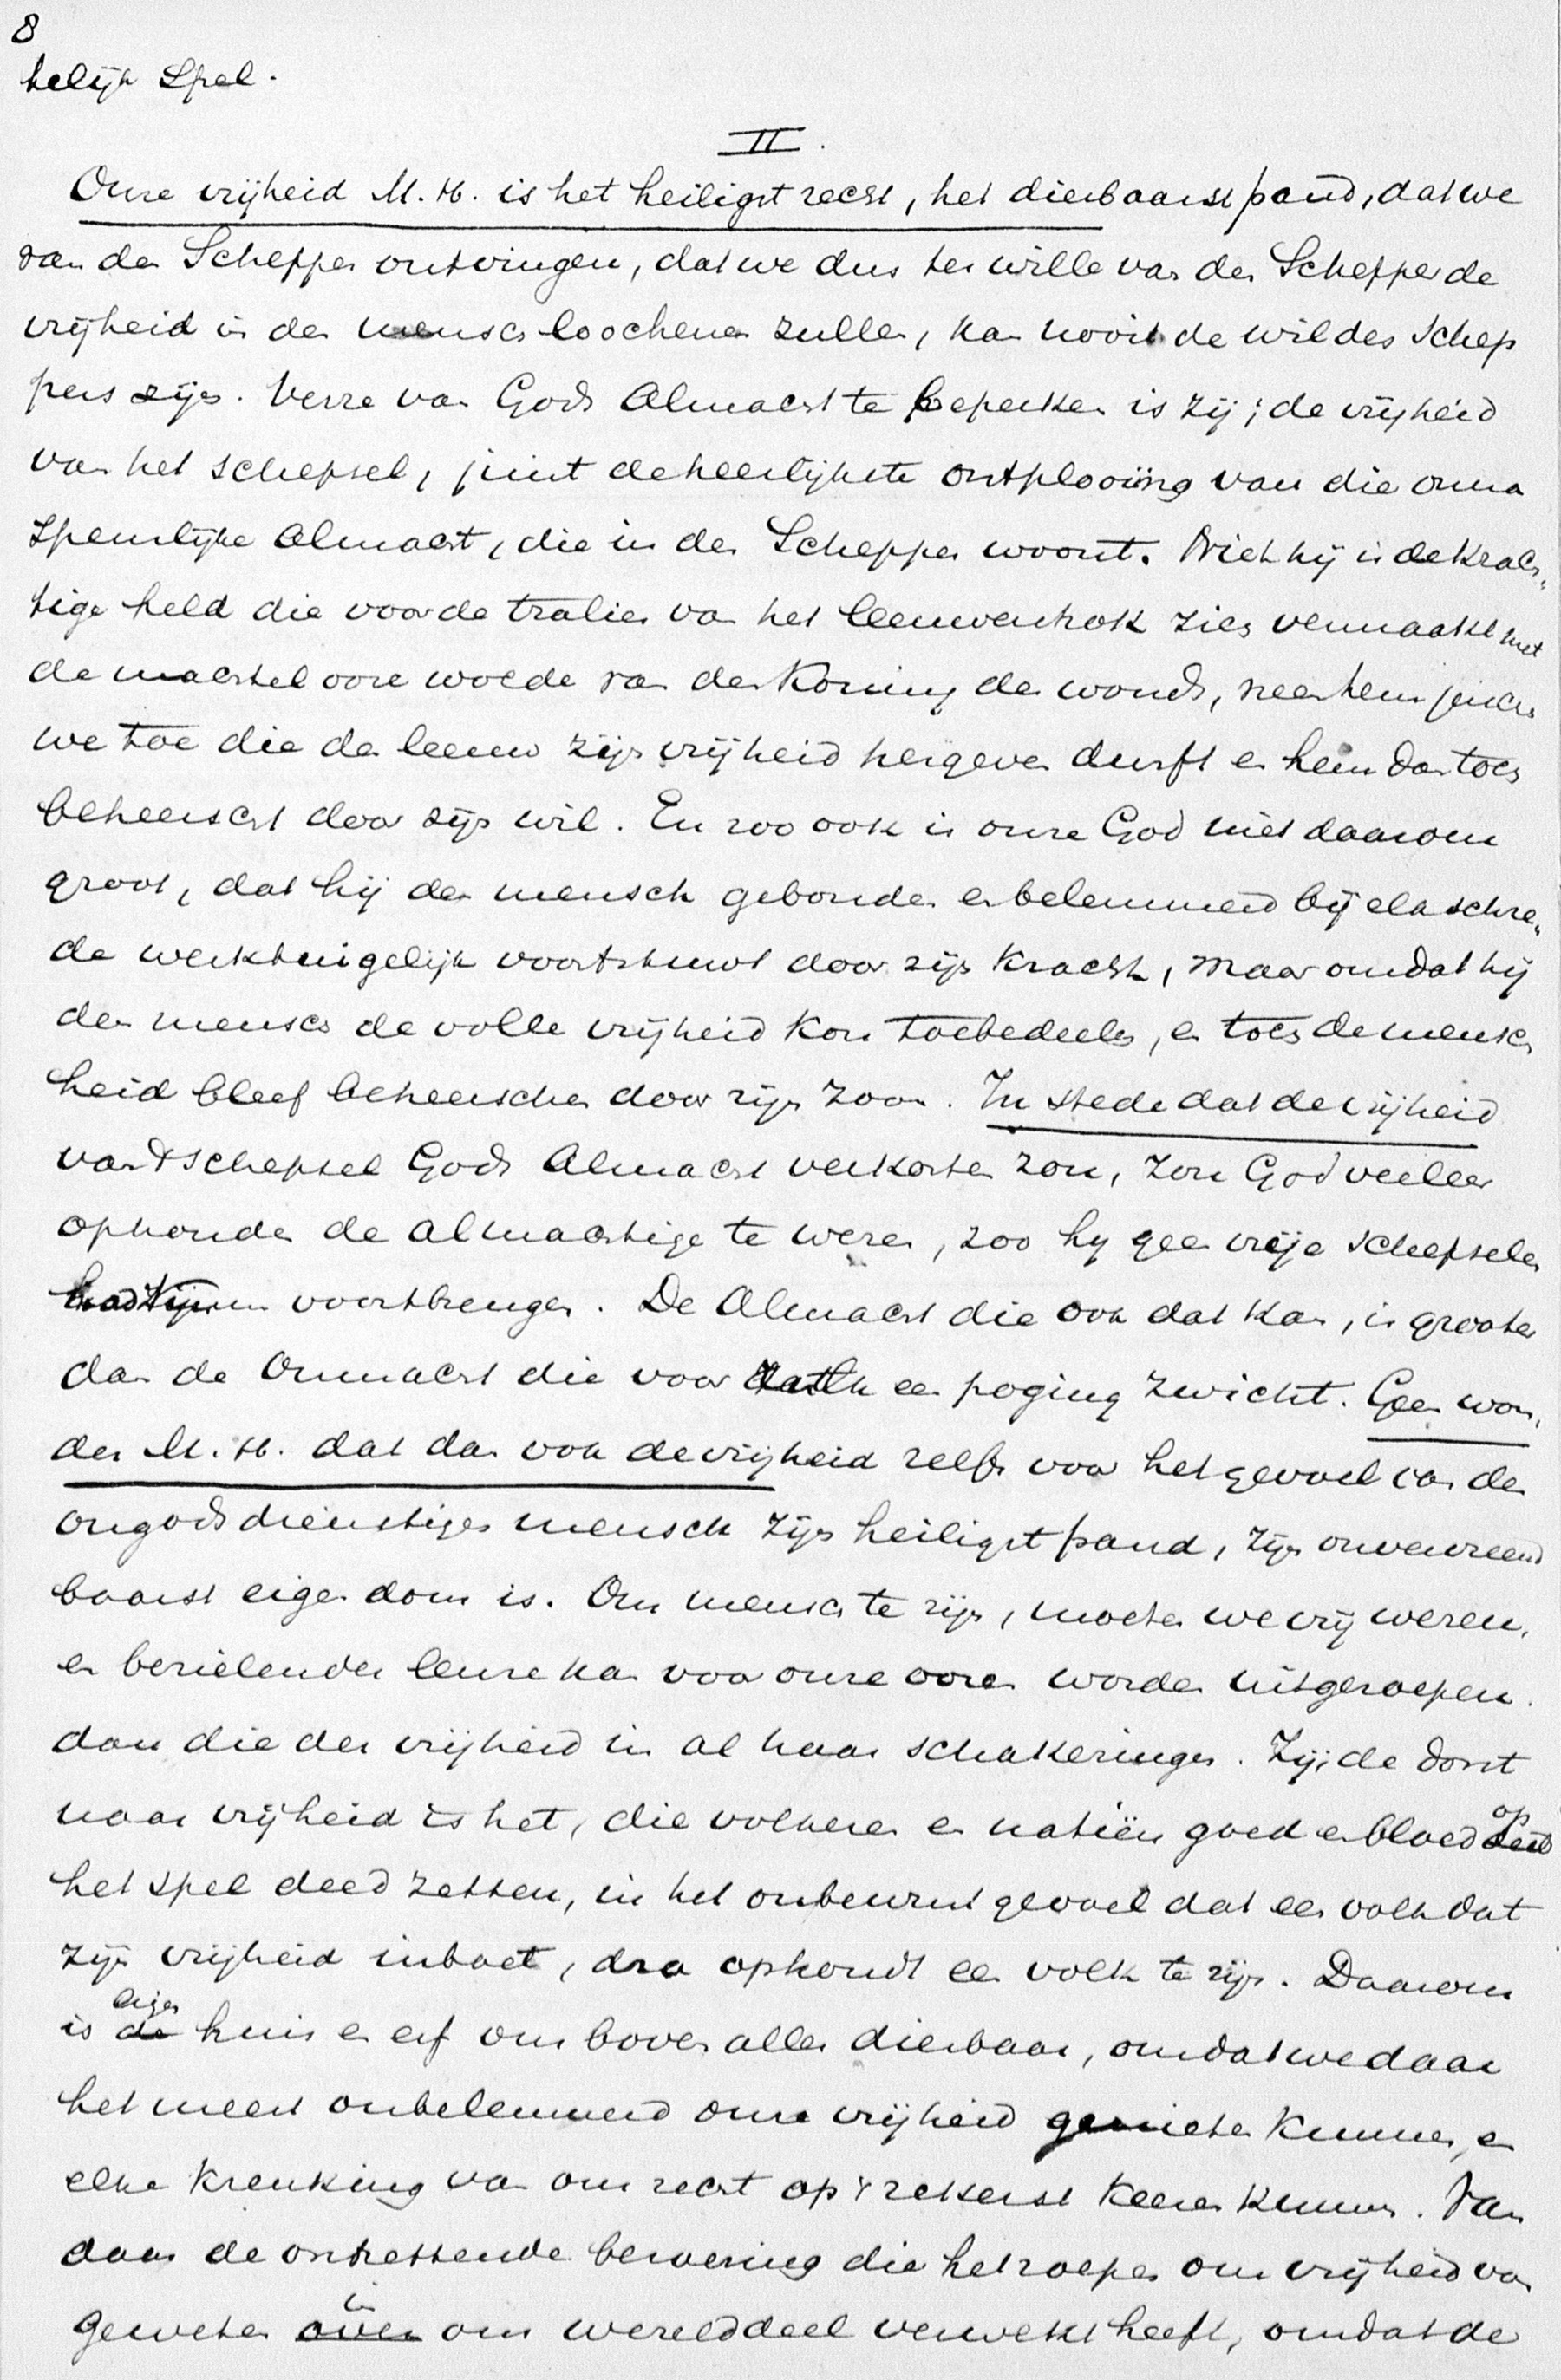 8
kelijk Spel.
II.
Onze vrijheid M.H. is het heiligst recht, het dierbaarst pand, dat we
van den Schepper ontvingen, dat we dus ter wille van den Schepper de
vrijheid in den mensch loochenen zullen, kan nooit de wil des Schep
pers zijn. Verre van Gods Almacht te beperken is zij; de vrijheid
van het schepsel, juist de heerlijkste ontplooiing van die onna
speurlijke Almacht, die in den Schepper woont. Niet hij is de krach„
tige held die voor de tralies van het leeuwenhok zich vermaakt met
de machteloore woede van den Koning der wouds, neen hem juichen
we toe die den leeuw zijn vrijheid hergeven durft en hem dan toch
beheerscht door zijn wil. En zoo ook is onze God niet daarom
groot, dat hij den mensch gebonden en belemmerd bij elk schre„
de werktuigelijk voortstuwt door zijn kracht, maar omdat hij
den mensch de volle vrijheid kon toebedeelen, en toch de mensch
heid bleef beheerschen door zijn Zoon. In stede dat de vrijheid
van 't schepsel Gods Almacht verkorten zou, zou God veeleer
ophouden de almachtige te wezen, zoo hy geen vrije schepselen
had kunnen voortbrengen. De Almacht die ook dat kan, is grooter
dan de Onmacht die voor zulk een poging zwicht. Geen won„
der M.H. dat dan ook de vrijheid zelfs voor het gevoel van den
ongodsdienstigen mensch zijn heiligst pand, zijn onvervreemd
baarst eigendom is. Om mensch te zijn, moeten we vrij wezen,
en bezielender leuze kan voor onze ooren worden uitgeroepen.
dan die der vrijheid in al haar schakeringen. Zij, de dorst
naar vrijheid is het, die volkeren en natiën goed en bloed op
het spel deed zetten, in het onbewust gevoel dat een volk dat
zijn vrijheid inboet, dra ophoudt een volk te zijn. Daarom
is eigen huis en erf ons boven alles dierbaar, omdat we daar
het meest onbelemmerd onze vrijheid genieten kunnen, en
elke krenking van ons recht op 't zekerst keeren kunnen. Van
daar de ontzettende beroering die het roepen om vrijheid van
geweten in ons werelddeel verwekt heeft, omdat de